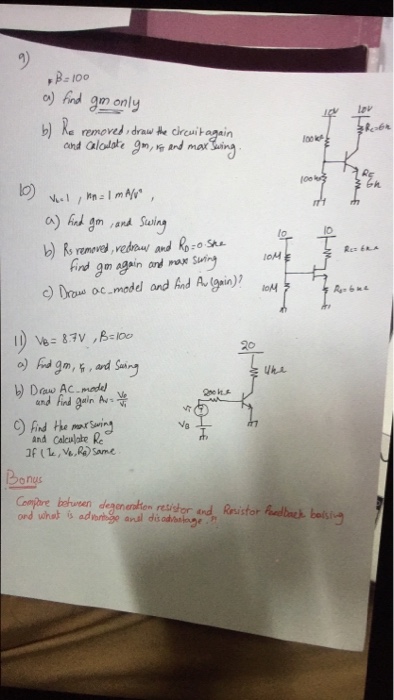 9)
β=100
a) find gm only
b) Re removed, draw the circuit again
and Calculate gm, rπ and max swing.
10V
10V
Rc=6k
100kΩ
100kΩ
RE
6k
10)
a) find gm, and Swing
b) Rs removed, redraw and RD=0.5kΩ
find gm again and max swing
c) Draw ac-model and find Av(gain)?
10
10
10M
10M
11) VB= 8.7V, β=100
a) find gm, rπ, and Swing
b) Draw AC-model
and find gain Av=
c) find the max swing
and Calculate Rc
If (Ic, VB, RB) Same
20
4kΩ
200kΩ
VB
Bonus
Compare between degeneration resistor and Resistor feedback
and what is advantage and disadvantage.?